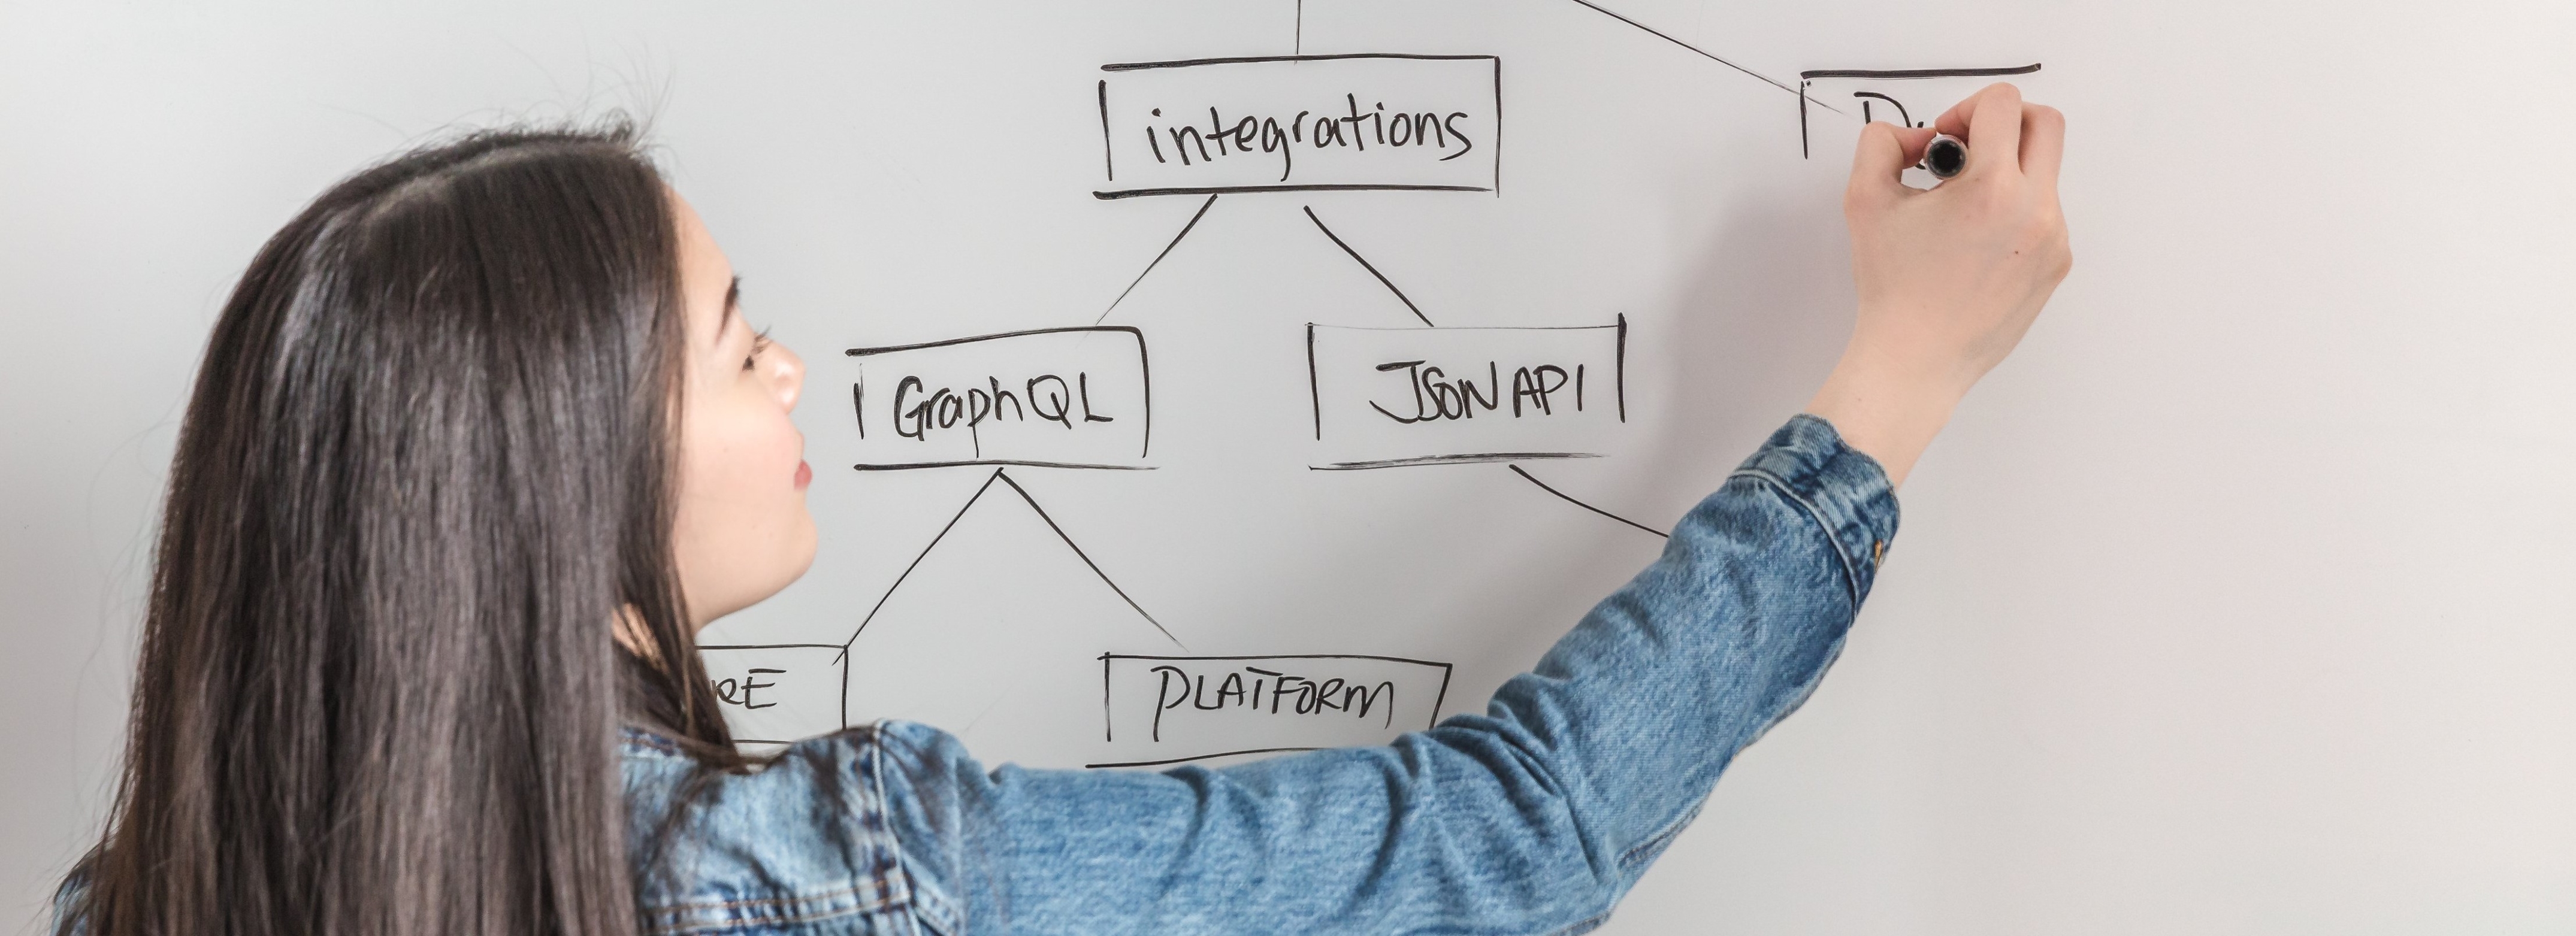 integrations
GraphQL
JSON API
PLATFORM